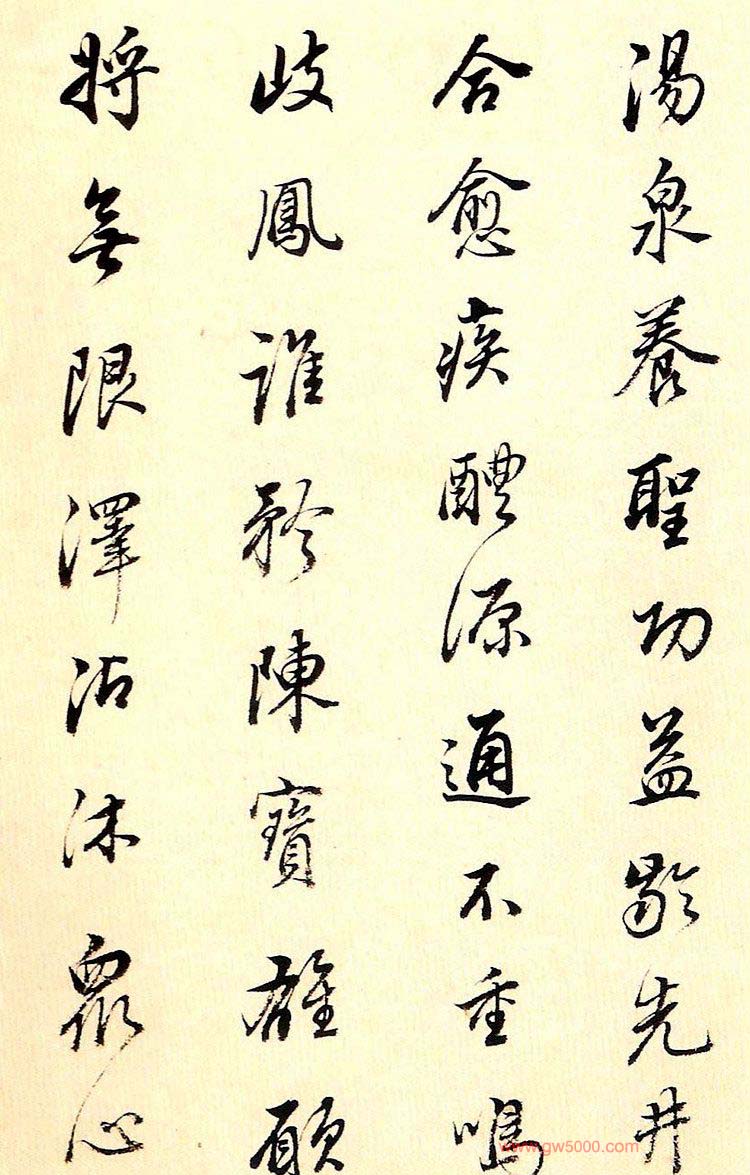 湯泉養聖功益齡先井
合愈疾醴源通不重鳴
歧鳳誰矜陳寶雄願
將無限澤沾沐眾心
www.gw5000.com